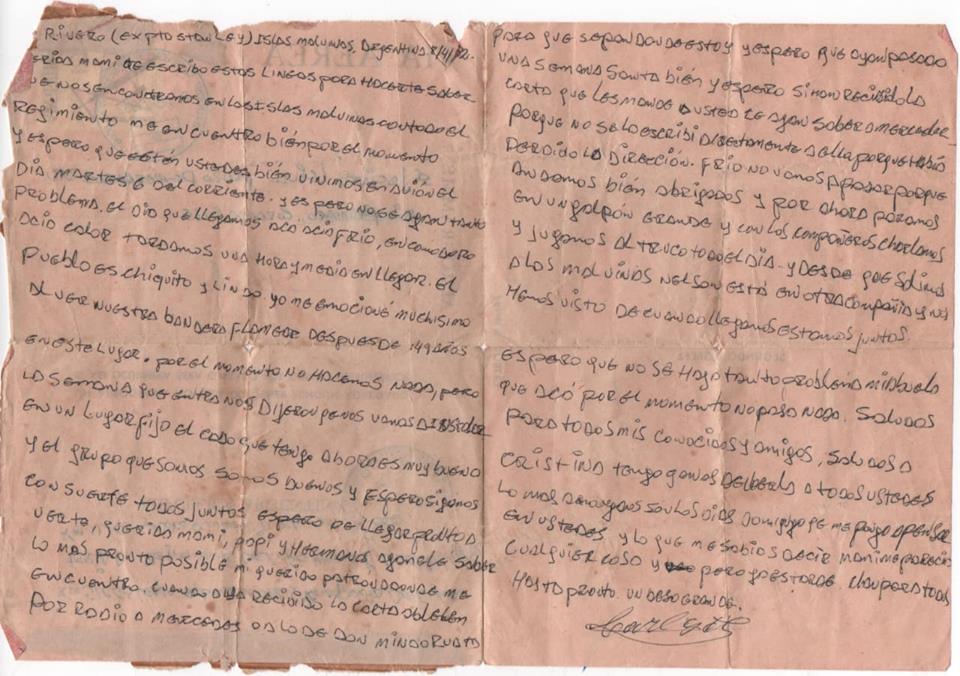 RIVERO (EXPTO STANLEY) ISLAS MALVINAS, ARGENTINA 8/4/82.
ERIDA MAMI TE ESCRIBO ESTAS LINEAS PARA HACERTE SABER
UE NOS ENCONTRAMOS EN LAS ISLAS MALVINAS CON TODO EL
REGIMIENTO ME ENCUENTRO BIÉN POR EL MOMENTO
Y ESPERO QUE ESTÉN USTEDES BIÉN VINIMOS EN AVIÓN EL
DIA MARTES 6 DEL CORRIENTE. Y ESPERO NO SE AGAN TANTO
PROBLEMA. EL DIA QUE LLEGAMOS ACA ACIA FRIO, EN COMODORO
ACIA CALOR TARDAMOS UNA HORA Y MEDIA EN LLEGAR. EL
PUEBLO ES CHIQUITO Y LINDO. YO ME EMOCIONÉ MUCHISIMO
AL VER NUESTRA BANDERA FLAMEAR DESPUES DE 149 AÑOS
EN ESTE LUGAR. POR EL MOMENTO NO HACEMOS NADA, PERO
LA SEMANA QUE ENTRA NOS DIJERON QUE NOS VAMOS A
EN UN LUGAR FIJO EL CABO QUE TENGO ABORA ES MUY BUENO
Y EL GRUPO QUE SOMOS SOMOS BUENOS Y ESPERO SIGAMOS
CON SUERTE TODOS JUNTOS ESPERO DE LLEGAR PRONTO A
VERTE, QUERIDA MAMI, PAPI Y HERMANOS AGANLE SABER
LO MAS PRONTO POSIBLE MI QUERIDO PATRON DONDE ME
ENCUENTRO. CUANDO AYA RECIBIDO LA CARTA ABLELEN
POR RADIO A MERCEDES O A LO DE DON MINDO RUATA
PARA QUE SEPAN DONDE ESTOY Y ESPERO QUE AYAN PASADO
UNA SEMANA SANTA BIÉN Y ESPERO SI HAN RECIBIDO LA
CARTA QUE LES MANDE A USTEDES LE AGAN SABER A MERCEDES
PORQUE NO SE LO ESCRIBI DIRECTAMENTE A ELLA PORQUE HABIA
PERDIDO LA DIRECIÓN. FRIO NO VAMOS A PASAR PORQUE
ANDAMOS BIÉN ABRIGADOS Y POR AHORA PARAMOS
EN UN GALPÓN GRANDE Y CON LOS COMPAÑEROS CHARLAMOS
Y JUGAMOS AL TRUCO TODO EL DIA. Y DESDE QUE SALIMOS
A LAS MALVINAS NELSON ESTÁ EN OTRA COMPAÑIA Y NOS
HEMOS VISTO DE CUANDO LLEGAMOS ESTAMOS JUNTOS.
ESPERO QUE NO SE HAGA TANTO PROBLEMA MI ABUELA
QUE ACÁ POR EL MOMENTO NO PASA NADA. SALUDOS
PARA TODOS MIS CONOCIDOS Y AMIGOS, SALUDOS A
CRISTINA TENGO GANAS DE VERLA A TODOS USTEDES
LO MAS AMARGOS SON LOS DIAS DOMINGO QE ME PONGO A PENSAR
EN USTEDES, Y LO QUE ME SABIAS DECIR MAMI ME PARECIO
CUALQUIER COSA Y PERO YA ES TARDE. CHAU PARA TODOS
HASTA PRONTO. UN BESO GRANDE.